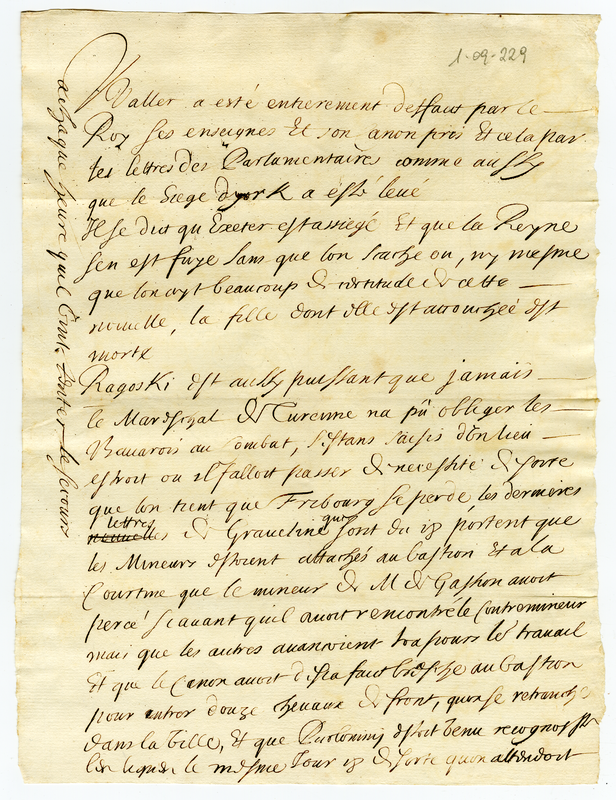 1-09-229
Waller a esté entierement desfaict par le
Roy ses enseignes Et son canon pris Et cela par
les lettres des Parlamentaires comme aussy
que le Siege dyork a esté levé
Il se dict qu'Exeter est assiegé Et que la Reyne
sen est fuye sans que lon scache ou, ny mesme
que lon ayt beaucoup de certitude de cette
nouvelle, la fille dont elle est accouchée est
morte
Ragoski est aussy puissant que jamais
le Mareschal de Turenne na pû obliger les
Bavarois au combat, s'estans saisis d'un lieu
estroit ou il falloit passer de necessité de sorte
que lon tient que Fribourg se perde, les dernieres
lettres
de Graveline qui sont du 18 portent que
les Mineurs estoient attachés au bastion Et a la
Courtine que le mineur de M de Gassion avoit
percé si avant quil avoit rencontré le Contremineur
mais que les autres avancoient tousiours le travail
Et que le Canon avoit desia faict bresche au bastion
pour entrer douze chevaux de front, quon se retranche
dans la ville, Et que Piccolomini estoit venu recognoistre
les lignes le mesme Jour 18 de sorte quon attendoit
a chaque heure quil tint tenter le secours